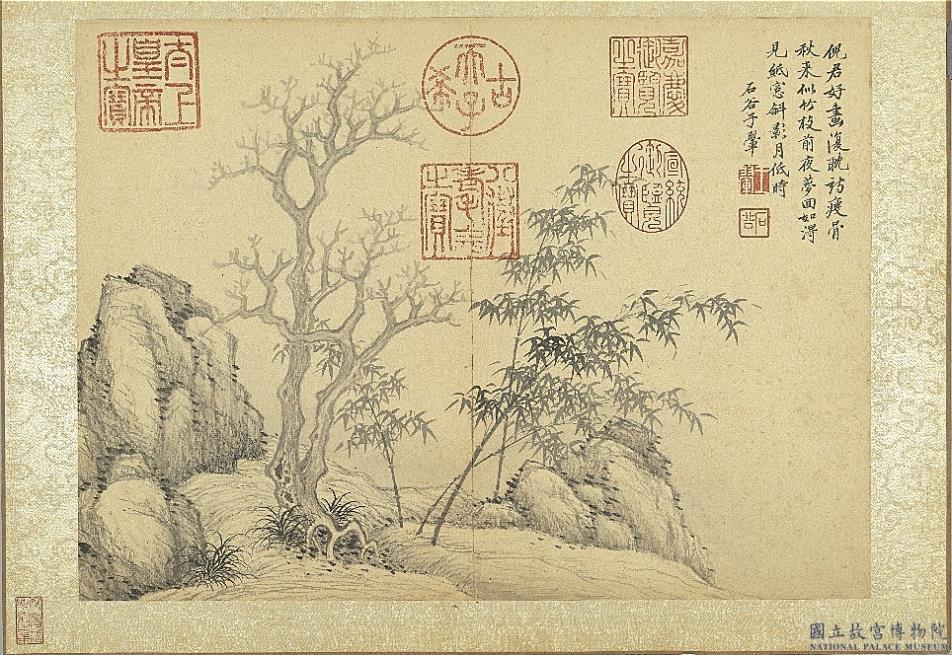 倪君好畫復耽詩瘦骨
秋来似竹枝前夜夢回如得
見紙窓斜影月低時
石谷子翬
石谷
嘉慶御覽之寶
宣統御覽之寶
古希天子
八徵耄念之寶
太上皇帝之寶
國立故宮博物院
NATIONAL PALACE MUSEUM